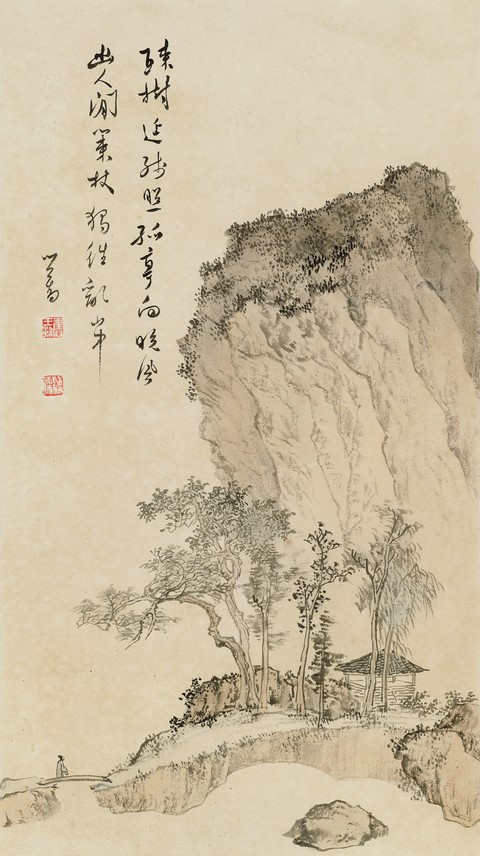 疎樹延殘照孤亭向晚風
幽人閒策杖獨往亂山中
心畬